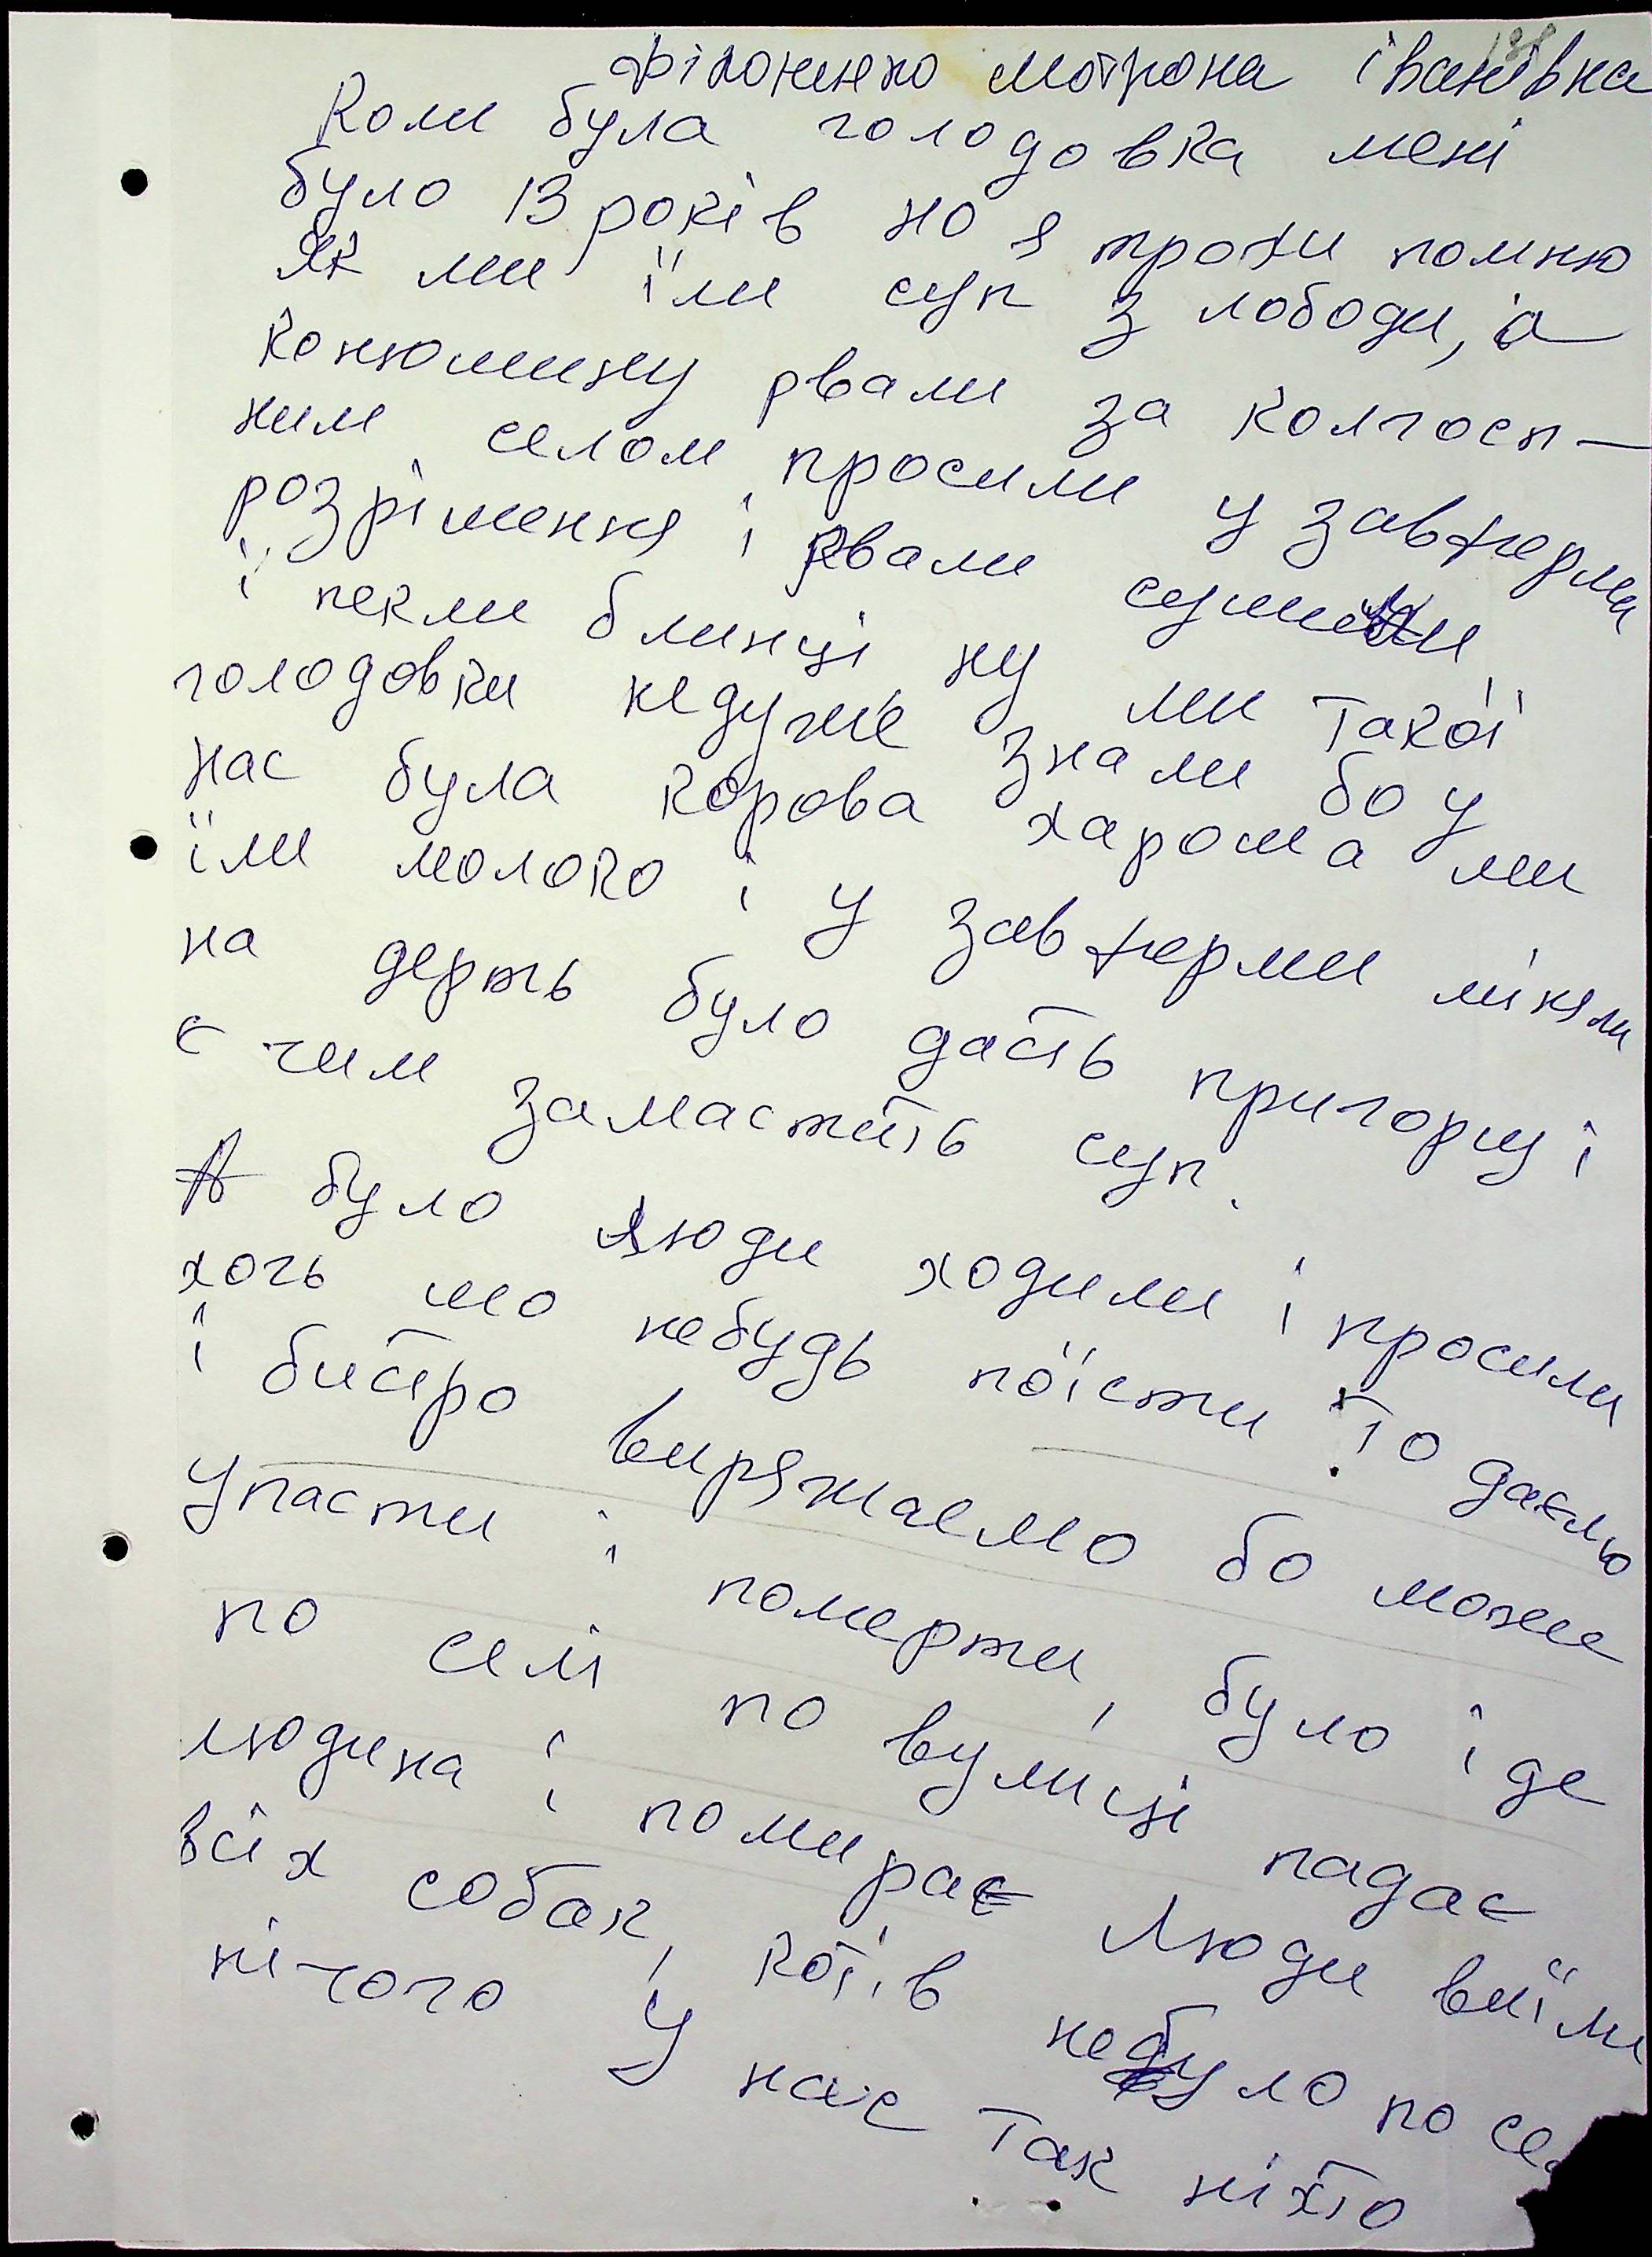 Філоненко Мотрона Іванівна
Коли була голодовка мені
було 13 років но я трохи помню
як ми їли суп з лободи, а
конюшину рвали за колгосп-
ним селом, просили у завферми
розрішення і рвали сушили
і пекли блинці ну ми такої
голодовки недуже знали бо у
нас була корова хароша ми
їли молоко і у завферми міняли
на дерть було дасть пригорщ і
є чим замастить суп.
А було люди ходили і просили
хочь шо небудь поїсти то даємо
і бистро виряжаємо бо може
упасти і померти, було іде
по селі по вулиці падає
людина і помирає Люди виїли
всіх собак, котів небуло по се
нічого У нас так ніхто